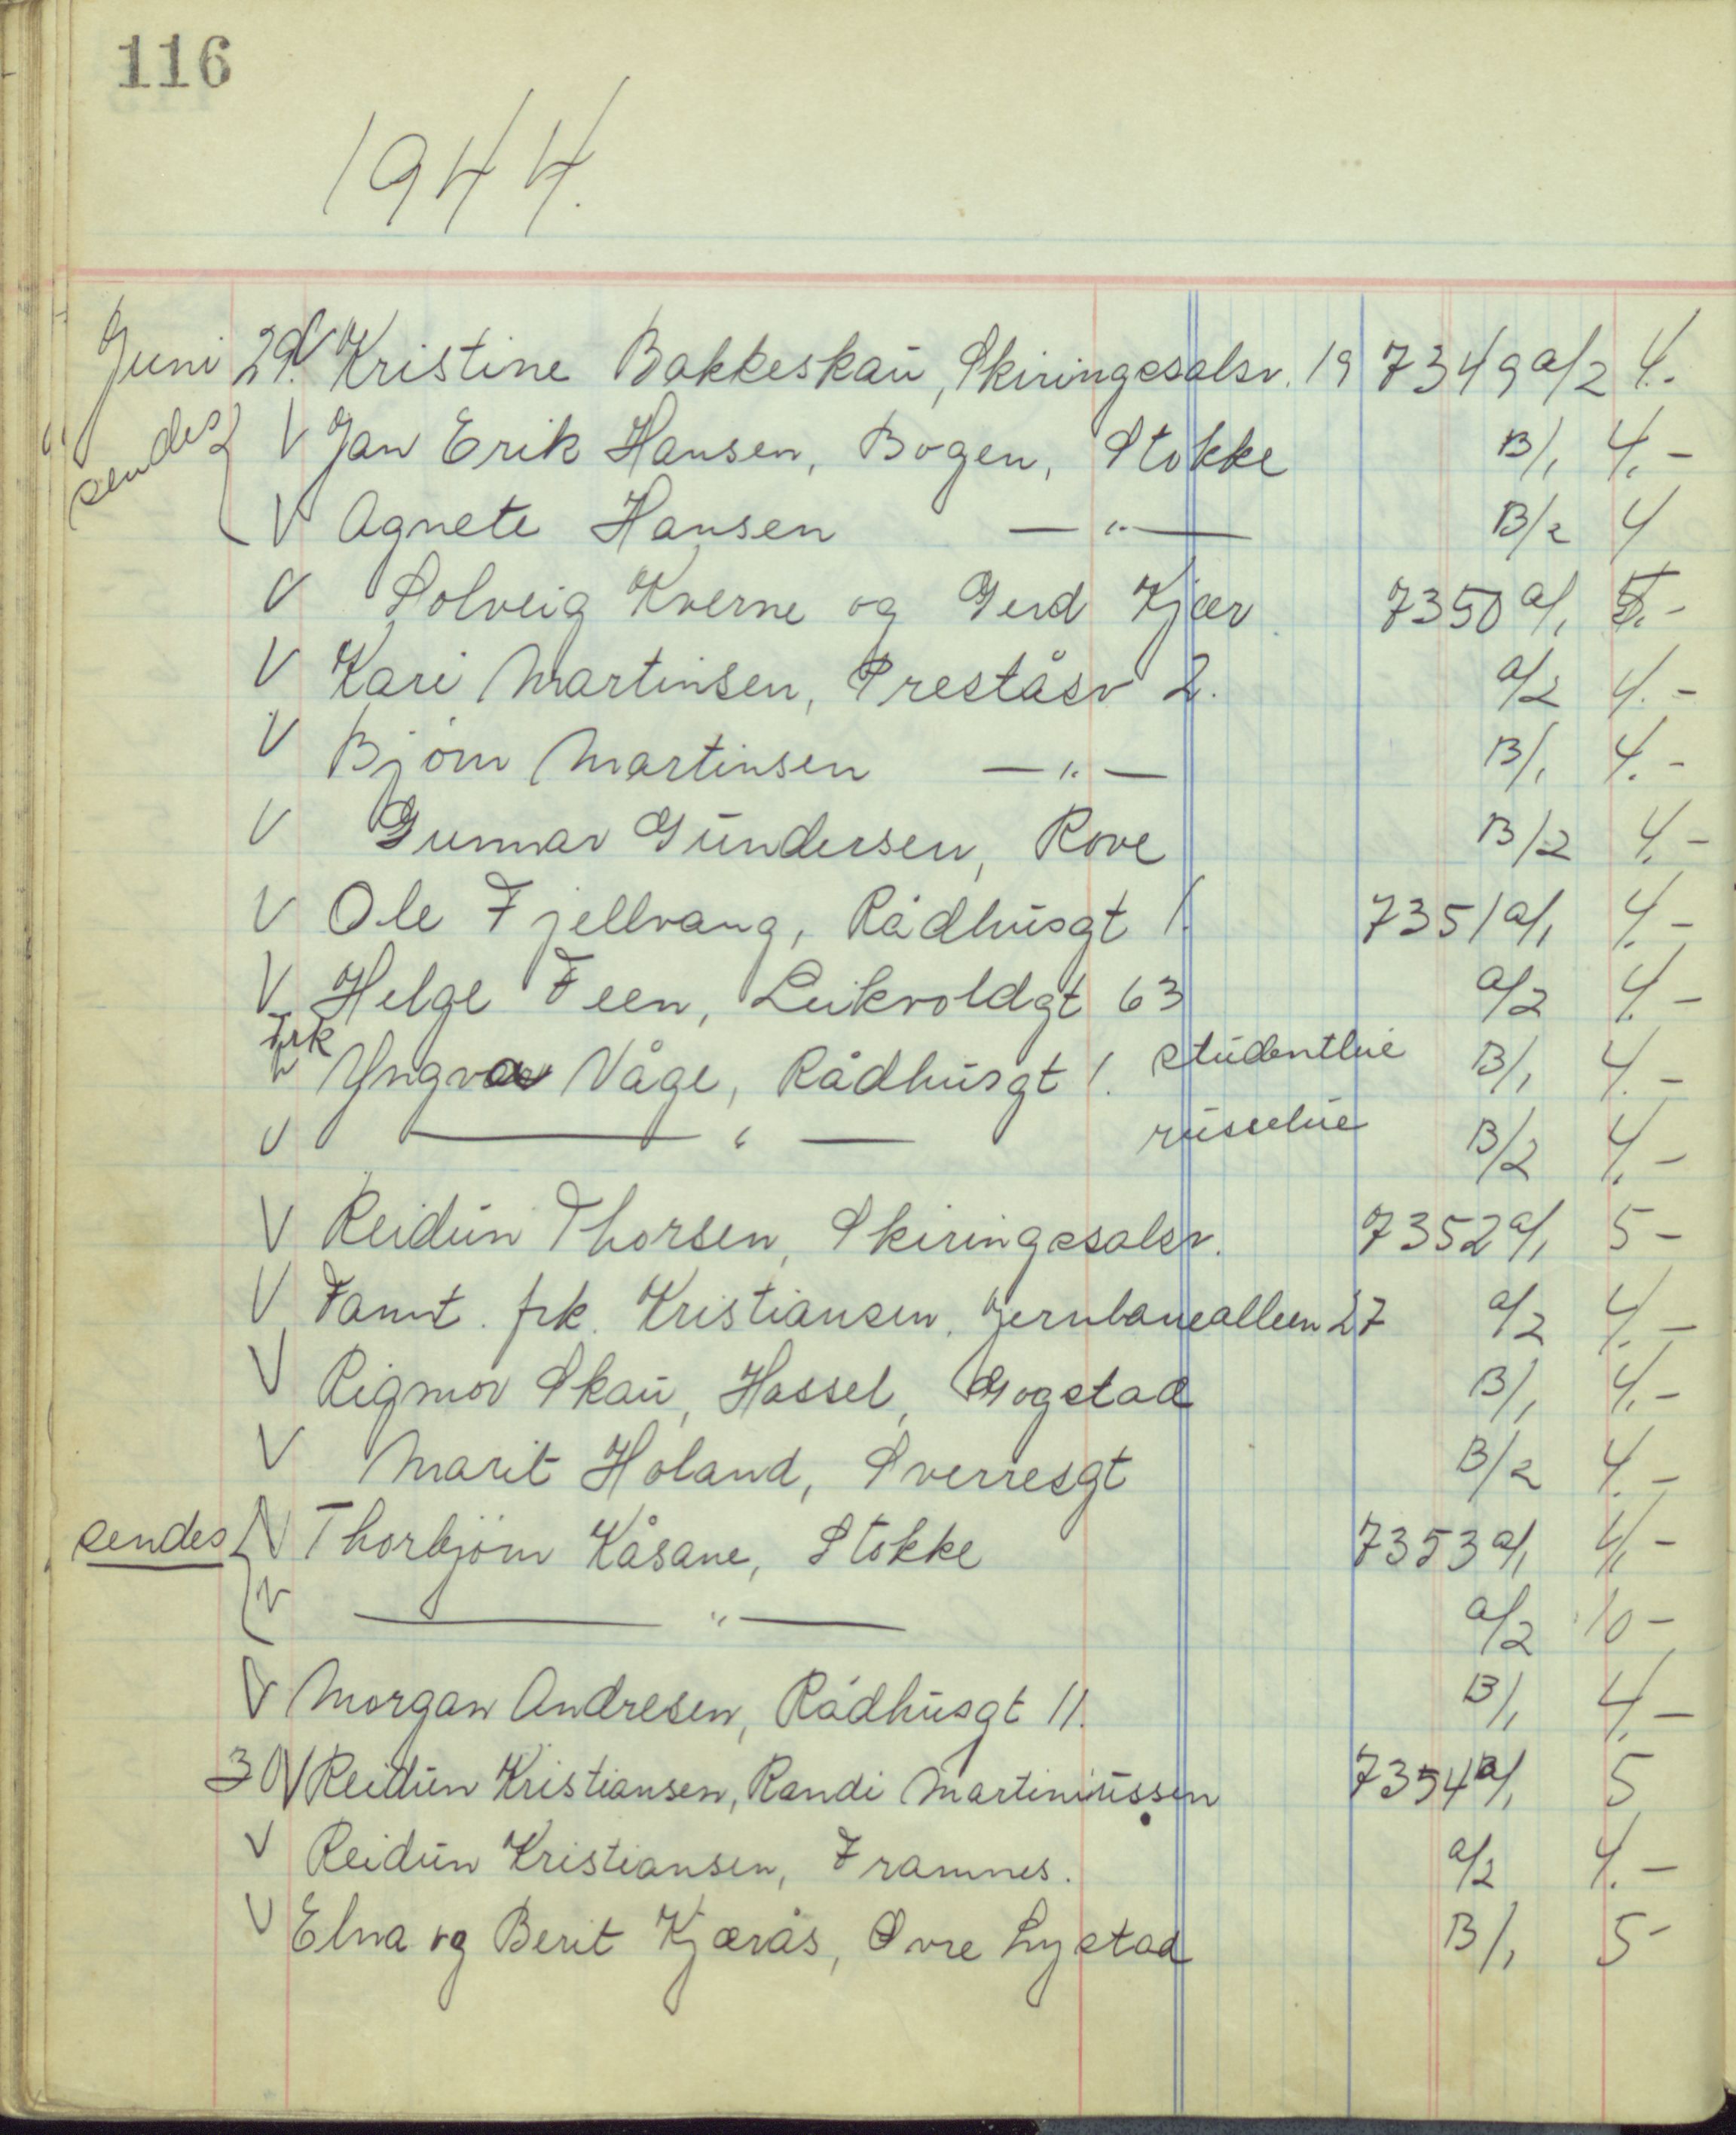 116
1944.
Juni 29. V Kristine Bakkeskaū, Skiringssalsv. 19 7349 a/2 4.-
sendes V Jan Erik Hansen, Bogen, Stokke B/1 4.-
V Agnete Hansen —"— B/2 4
V Solveig Kverne og Gerd Kjær 7350 a/1 5.-
V Kari Martinsen, Preståsv 2. a/2 4.-
V Bjørn Martinsen —"— B/1 4.-
V Gunnar Gūndersen, Rove B/2 4.-
V Ole Fjellvang, Rådhūsgt 1. 7351 a/1 4.-
V Helge Feen, Leikvoldgt 63 a/2 4.-
frk
V Yngva Våge, Rådhūsgt 1. stūdentlūe B/1 4.-
V —"— rūsselūe B/2 4.-
V Reidūn Thorsen, Skiringssalsv. 7352 a/1 5-
V Tannt. frk. Kristiansen, Jernbanealleen 27 a/2 4.-
V Rigmor Skaū, Hassel, Gogstad B/1 4.-
V Marit Holand, Sverresgt B/2 4.-
sendes V Thorbjørn Kåsane, Stokke 7353 a/1 4.-
V —"— a/2 10-
V Morgan Andresen, Rådhūsgt 11. B/1 4.-
30 V Reidūn Kristiansen, Randi Martiniūssen 7354 a/1 5
V Reidūn Kristiansen, Framnes. a/2 4.-
V Elna og Berit Kjærås, Øvre Lystad B/1 5-